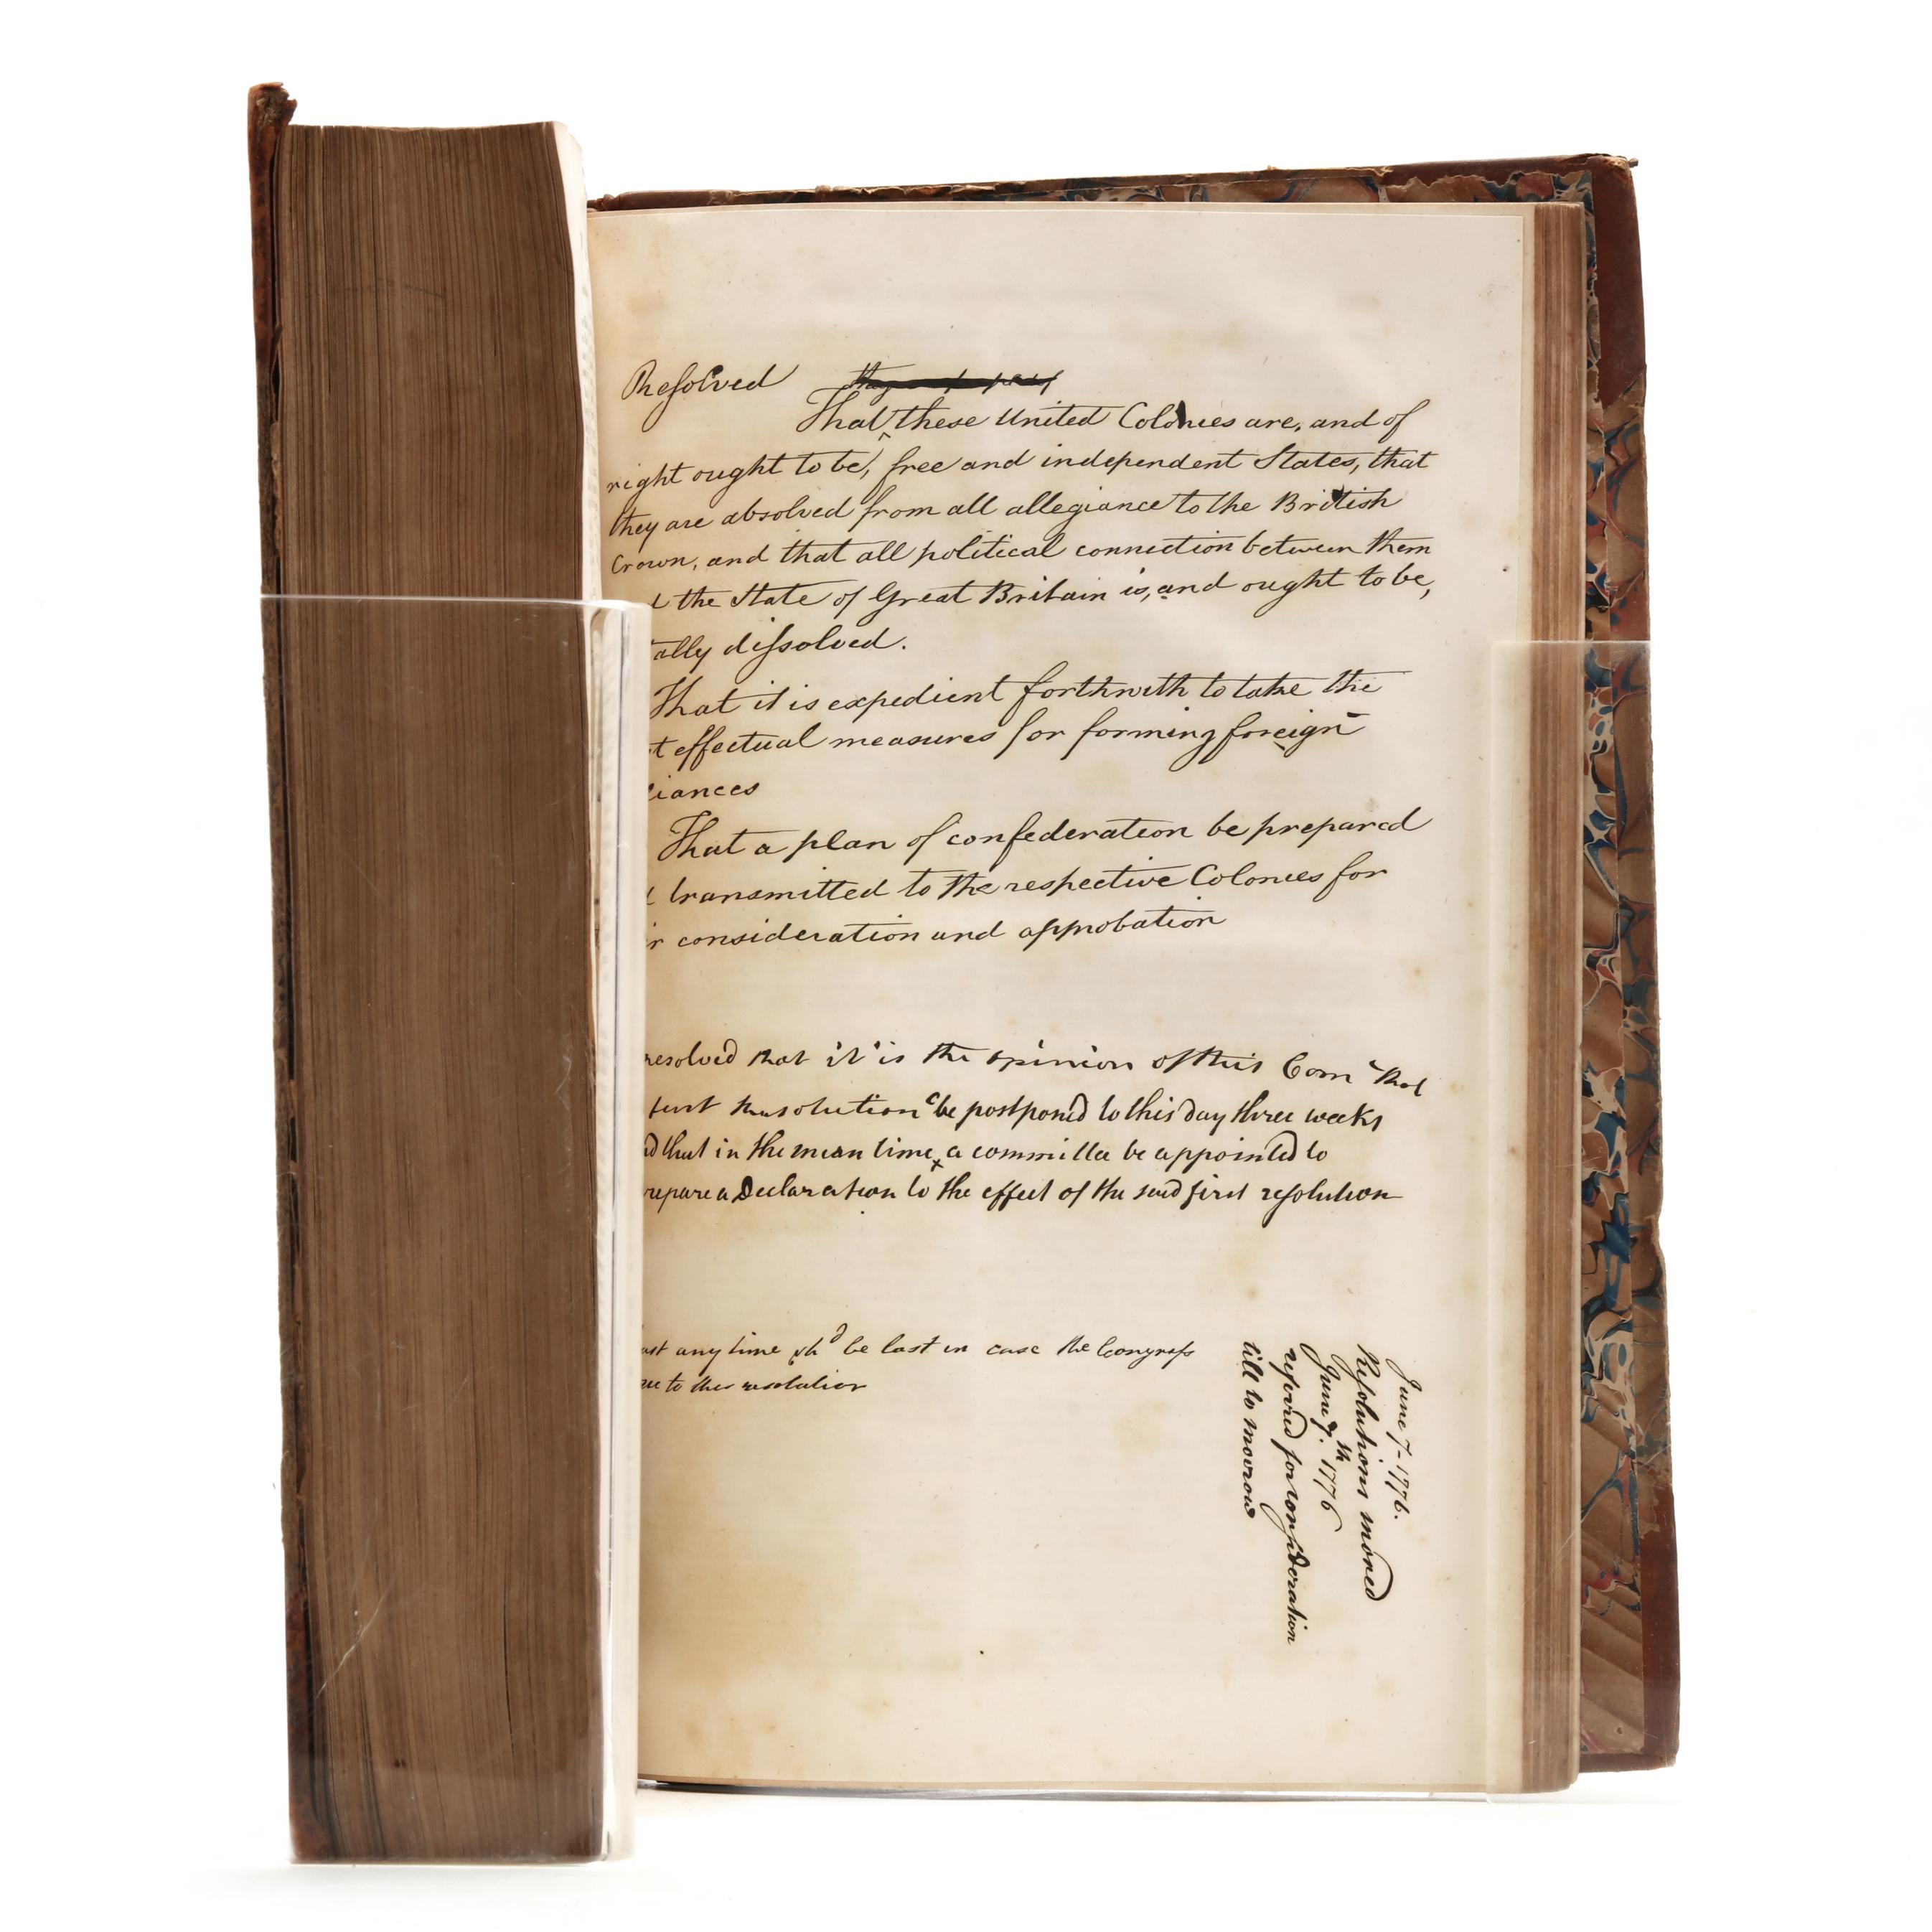 Resolved
That these United Colonies are, and of
right ought to be, free and independent States, that
they are absolved from all allegiance to the British
Crown, and that all political connection between them
the State of Great Britain is, and ought to be,
ally dissolved.
That it is expedient forthwith to take the
t effectual measures for forming foreign
liances
That a plan of confederation be prepared
transmitted to the respective Colonies for
r consideration and approbation
resolved that it is the opinion of this Com that
first Resolution be postponed to this day three weeks
d that in the mean time a committee be appointed to
repare a Declaration to the effect of the said first resolution
ast any time shd be lost in case the Congress
ree to this resolution
June 7-1776.
Resolutions moved
June 7th. 1776
referred for consideration
till to morrow